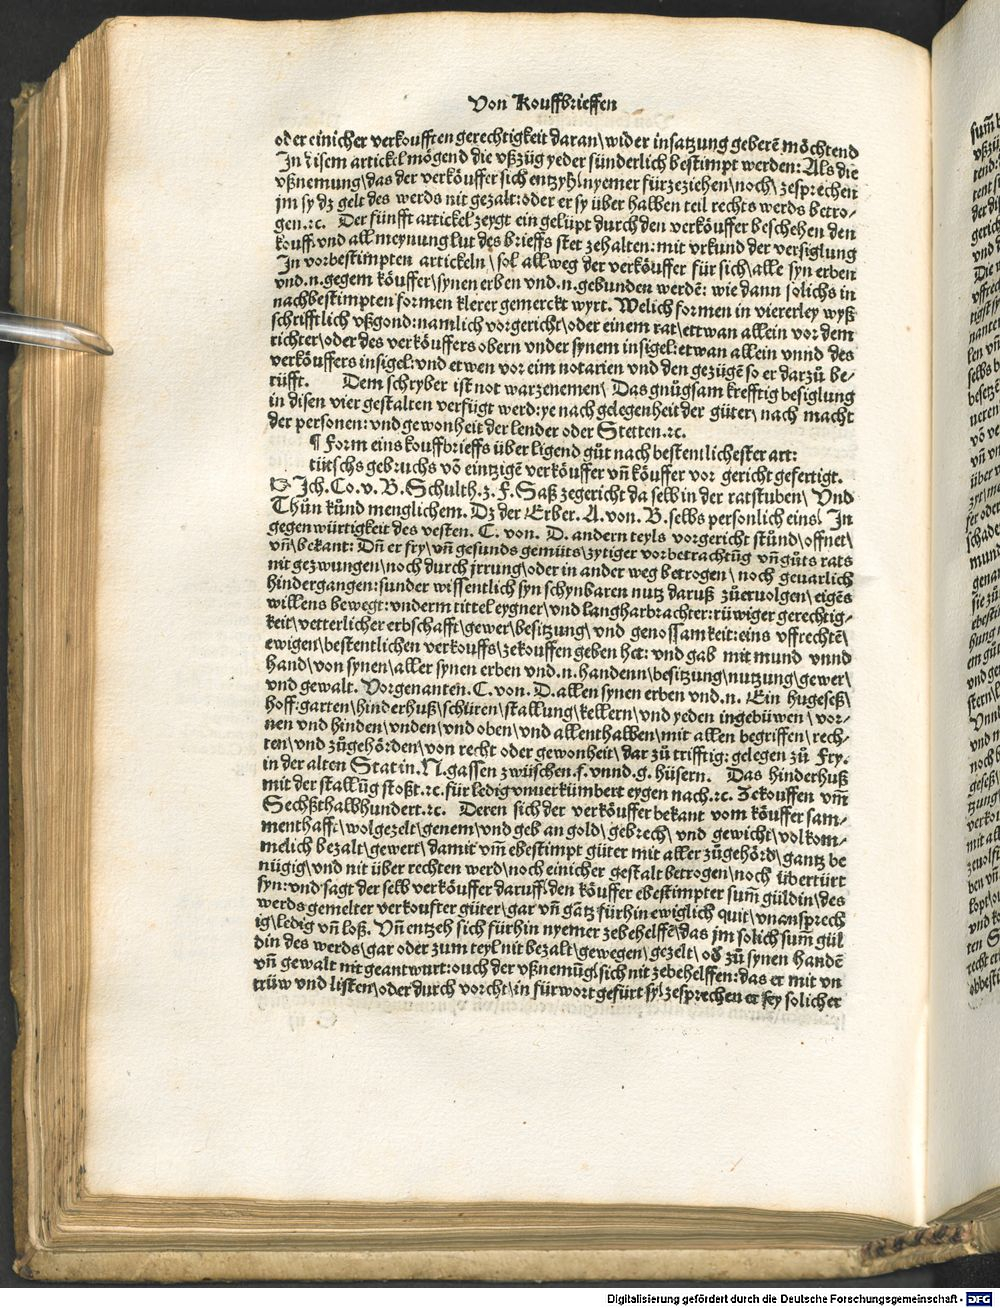 Von Kouffbrieffen
oder einicher verkoufften gerechtigkeit daran\ wider insatzung geberē möchtend
In disem artickel mögend die vßzüg yeder sünderlich bestimpt werden: Als die
vßnemung\ das der verköuffer sich entzyh\ nyemer fürzeziehen\ noch\ zesprechen
jm sy dz gelt des werds nit gezalt: oder er sy über halben teil rechts werds betro-
gen.⁊c. Der fünfft artickel zeygt ein gelüpt durch den verköuffer beschehen den
kouff vnd all meynung lut des brieffs stet zehalten: mit vrkund der versiglung
In vorbestimpten artickeln\ sol allweg der verköuffer für sich\ alle syn erben
vnd.n.gegem köuffer\ synen erben vnd.n.gebunden werdē: wie dann solichs in
nachbestimpten formen klerer gemerckt wyrt. Welich formen in viererley wyß
schrifftlich vßgond: namlich vor gericht\ oder einem rat\ ettwan allein vor dem
richter\ oder des verköuffers obern vnder synem insigel: etwan allein vnnd des
verköuffers insigel: vnd etwen vor eim notarien vnd den gezügē so er darzů be-
rüfft. Dem schryber ist not warzenemen\ Das gnůgsam krefftig besiglung
in disen vier gestalten verfügt werd: ye nach gelegenheit der güter\ nach macht
der personen: vnd gewonheit der lender oder Stetten.⁊c.
¶ Form eins kouffbrieffs über ligend gůt nach bestentlichester art:
tütschs gebruchs vō eintzigē verköuffer vn̄ köuffer vor gericht gefertigt.
☞ Ich. Co. v. B. Schulth. z. F. Saß zegericht da selb in der ratstuben\ Vnd
Thůn kůnd menglichem. Dz der Erber. A. von. B. selbs personlich eins\ In
gegenwürtigkeit des vesten. C. von. D. andern teyls vor gericht stůnd\ offnet\
vn̄\ bekant: Dn̄ er fry\ vn̄ gesunds gemüts\ zytiger vorbetrachtūg vn̄ gůts rats
nit gezwungen\ noch durch jrrung\ oder in ander weg betrogen\ noch geuarlich
hindergangen: sunder wissentlich syn schynbaren nutz daruß zůeruolgen\ eigēs
willens bewegt: vnderm tittel eygner\ vnd langharbrachter: rüwiger gerechtig-
keit\ vetterlicher erbschafft\ gewer\ besitzung\ vnd genossamkeit: eins vffrechtē\
ewigen\ bestentlichen verkouffs\ zekouffen geben het: vnd gab mit mund vnnd
hand\ von synen\ aller synen erben vnd.n.handenn\ besitzung\ nutzung\ gewer\
vnd gewalt. Vorgenanten. C. von. D. allen synen erben vnd.n. Ein hugeseß\
hoff: garten\ hinderhuß\ schüren\ stallung\ kellern\ vnd yeden ingebüwen\ vor-
nen vnd hinden\ vnden\ vnd oben\ vnd allenthalben\ mit allen begriffen\ rech-
ten\ vnd zůgehörden\ von recht oder gewonheit\ dar zů trifftig: gelegen zů Fry.
in der alten Stat in. N. gassen zwüschen .f. vnnd .g. hüsern. Das hinderhuß
mit der stallūg stoßt.⁊c. für ledig vnuerkümbert eygen nach.⁊c. Zekouffen vm̄
Sechßthalbhundert.⁊c. Deren sich der verköuffer bekant vom köuffer sam-
menthafft\ wolgezelt\ genem\ vnd geb an gold\ gebrech\ vnd gewicht\ volkom-
melich bezalt\ gewert\ damit vm̄ ebestimpt güter mit aller zůgehörd\ gantz be
nügig\ vnd nit über rechten werd\ noch einicher gestalt betrogen\ noch übertürt
syn: vnd sagt der selb verköuffer daruff\ den köuffer ebestimpter sum̄ güldin\ des
werds gemelter verkoufter güter\ gar vn̄ gātz fürhin ewiglich quit\ vnansprech
ig\ ledig vn̄ loß. Vn̄ entzeh sich fürhin nyemer zebehelffē\ das jm solich sum̄ gül
din des werds\ gar oder zum teyl nit bezalt\ gewegen\ gezelt\ oď zů synen handē
vn̄ gewalt nit geantwurt: ouch der vßnemūg\ sich nit zebehelffen: das er mit vn
trüw vnd listen\ oder durch vorcht\ in fürwort gefürt sy\ zesprechen er sey solicher
Digitalisierung gefördert durch die Deutsche Forschungsgemeinschaft - DFG